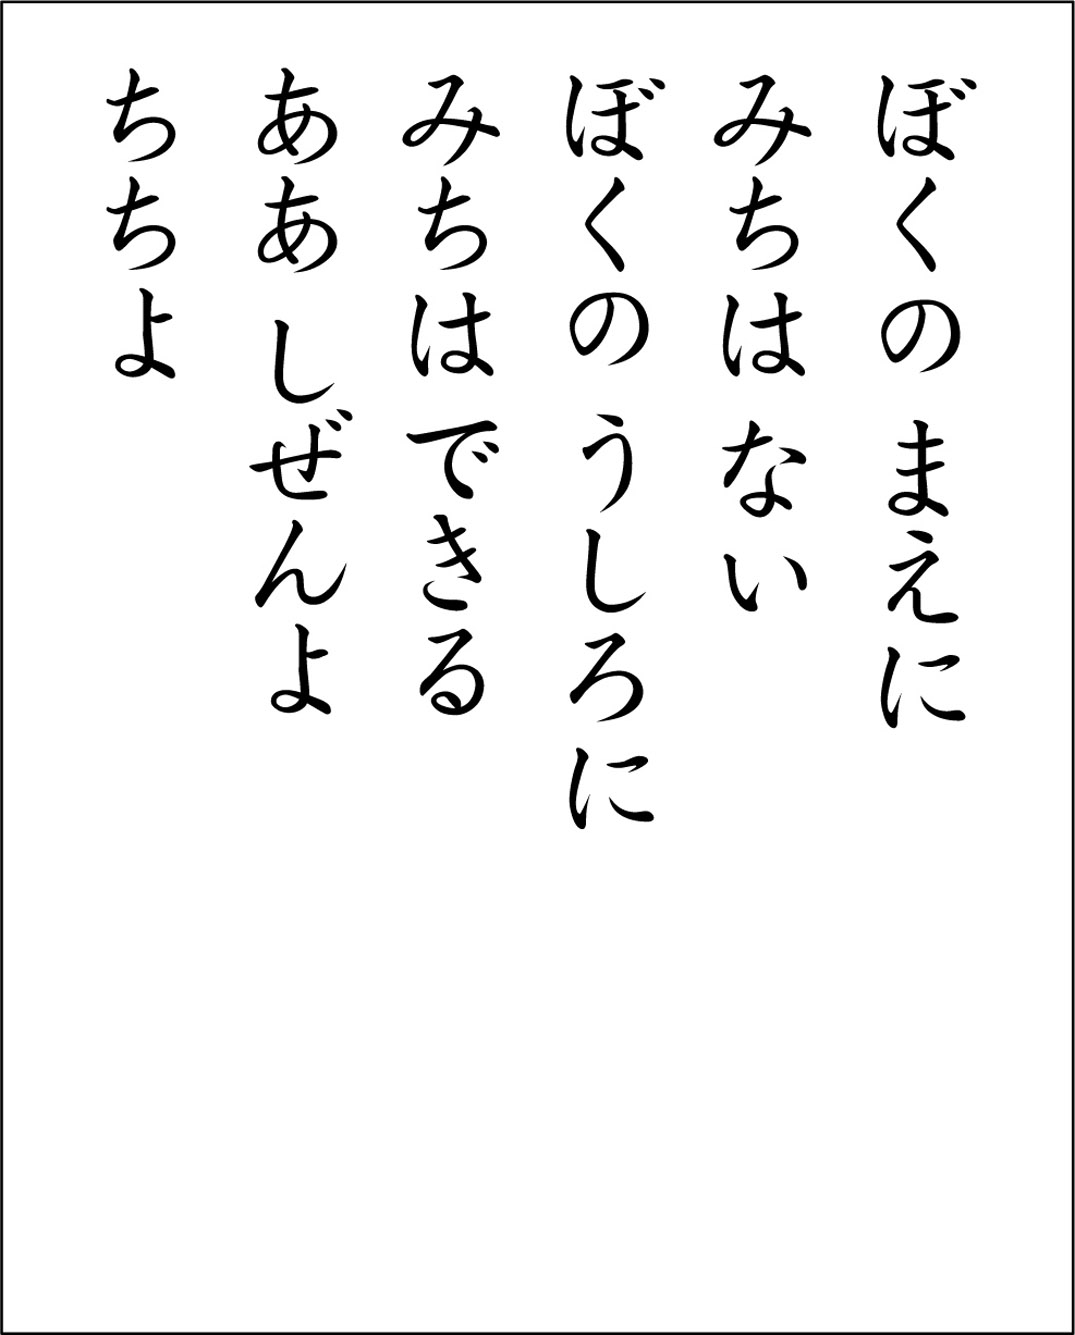 ぼくの まえに
みちは ない
ぼくの うしろに
みちは できる
ああ しぜんよ
ちちよ